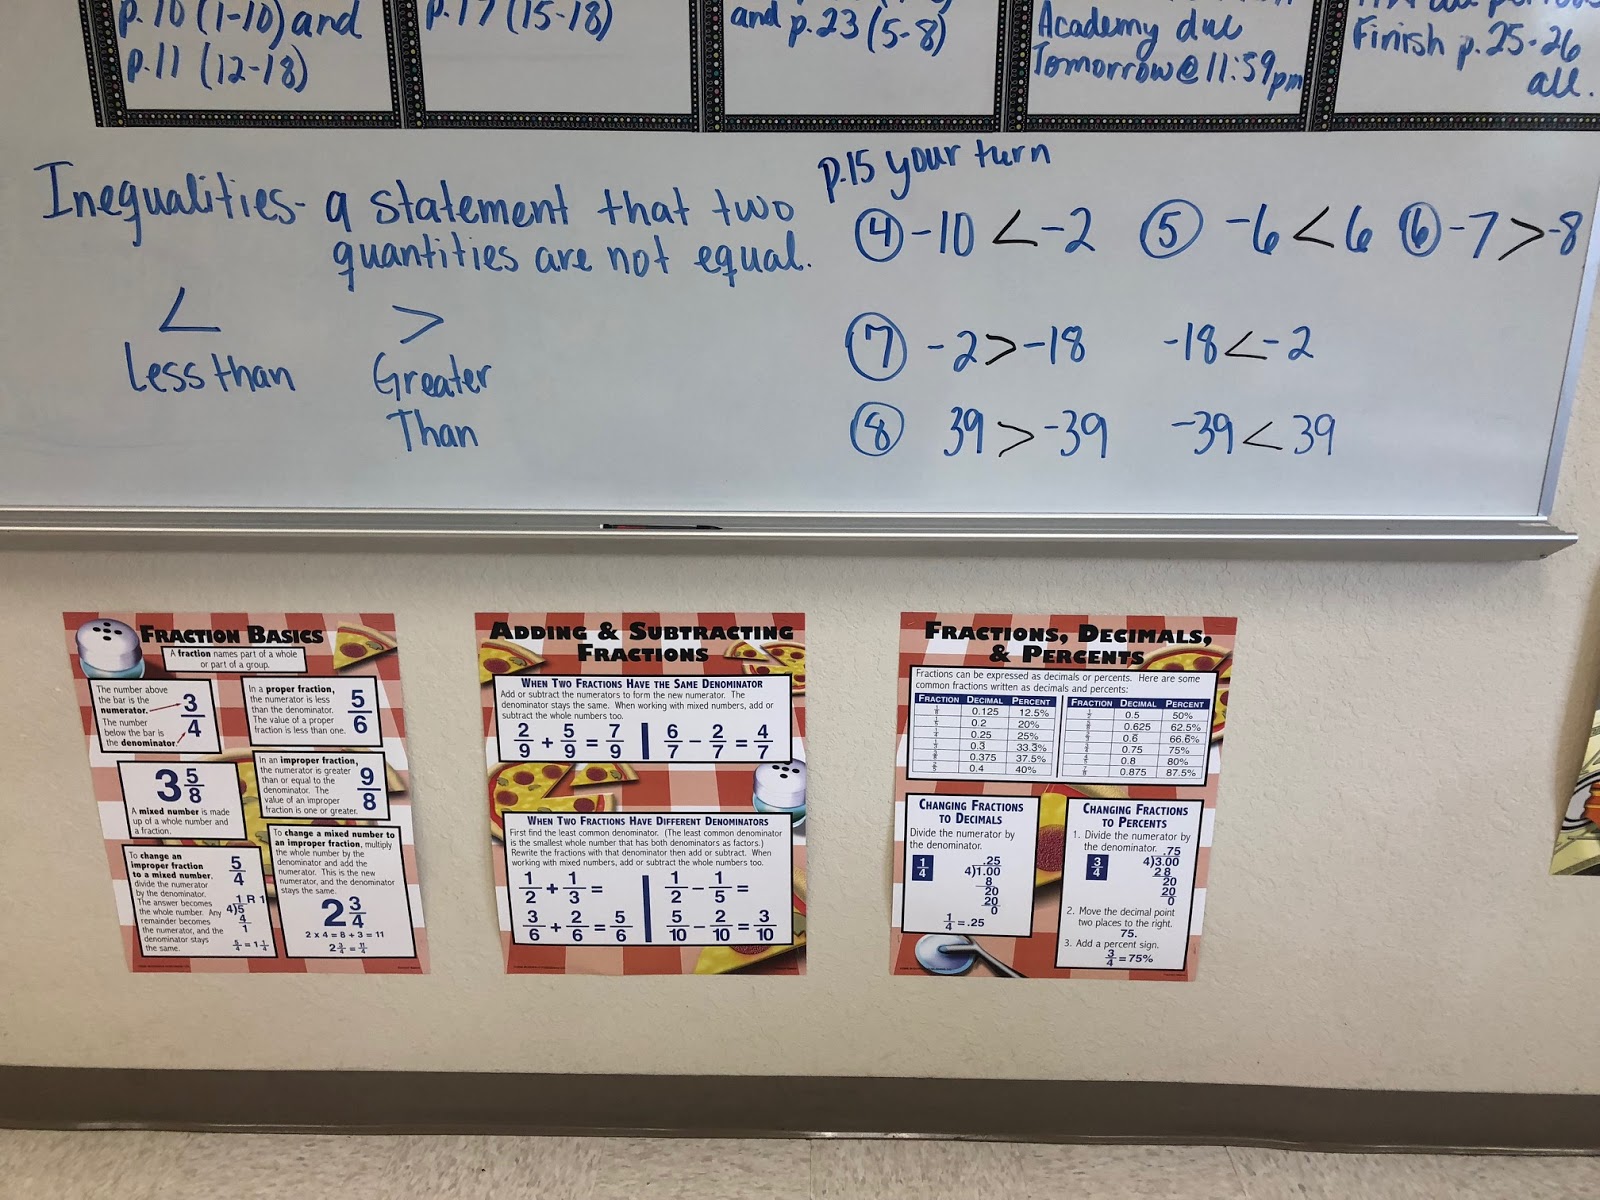 p.10 (1-10) and
p.11 (12-18)
p.17 (15-18)
and p.23 (5-8)
Academy due
Tomorrow@11:59pm
Finish p.25-26
all.
Inequalities- a statement that two
quantities are not equal.
< >
Less than Greater
Than
p.15 your turn
④ -10 < -2 ⑤ -6 < 6 ⑥ -7 > -8
⑦ -2 > -18 -18 < -2
⑧ 39 > -39 -39 < 39
FRACTION BASICS
A fraction names part of a whole
or part of a group.
The number above
the bar is the
numerator.
The number
below the bar is
the denominator.
3/4
In a proper fraction,
the numerator is less
than the denominator.
The value of a proper
fraction is less than one.
5/6
3 5/8
A mixed number is made
up of a whole number and
a fraction.
In an improper fraction,
the numerator is greater
than or equal to the
denominator. The
value of an improper
fraction is one or greater.
9/8
To change an
improper fraction
to a mixed number,
divide the numerator
by the denominator.
The answer becomes
the whole number. Any
remainder becomes
the numerator, and the
denominator stays
the same.
5/4
1 R 1
4)5
4
1
5/4 = 1 1/4
To change a mixed number to
an improper fraction, multiply
the whole number by the
denominator and add the
numerator. This is the new
numerator, and the denominator
stays the same.
2 3/4
2 x 4 = 8 + 3 = 11
2 3/4 = 11/4
ADDING & SUBTRACTING
FRACTIONS
WHEN TWO FRACTIONS HAVE THE SAME DENOMINATOR
Add or subtract the numerators to form the new numerator. The
denominator stays the same. When working with mixed numbers, add or
subtract the whole numbers too.
2/9 + 5/9 = 7/9 | 6/7 - 2/7 = 4/7
WHEN TWO FRACTIONS HAVE DIFFERENT DENOMINATORS
First find the least common denominator. (The least common denominator
is the smallest whole number that has both denominators as factors.)
Rewrite the fractions with that denominator then add or subtract. When
working with mixed numbers, add or subtract the whole numbers too.
1/2 + 1/3 = | 1/2 - 1/5 =
3/6 + 2/6 = 5/6 | 5/10 - 2/10 = 3/10
FRACTIONS, DECIMALS,
& PERCENTS
Fractions can be expressed as decimals or percents. Here are some
common fractions written as decimals and percents:
FRACTION DECIMAL PERCENT
1/8 0.125 12.5%
1/5 0.2 20%
1/4 0.25 25%
1/3 0.3̅ 33.3̅%
3/8 0.375 37.5%
2/5 0.4 40%
FRACTION DECIMAL PERCENT
1/2 0.5 50%
5/8 0.625 62.5%
2/3 0.6̅ 66.6̅%
3/4 0.75 75%
4/5 0.8 80%
7/8 0.875 87.5%
CHANGING FRACTIONS
TO DECIMALS
Divide the numerator by
the denominator.
1/4
.25
4)1.00
8
20
20
0
1/4 = .25
CHANGING FRACTIONS
TO PERCENTS
1. Divide the numerator by
the denominator.
3/4
.75
4)3.00
28
20
20
0
2. Move the decimal point
two places to the right.
75.
3. Add a percent sign.
3/4 = 75%